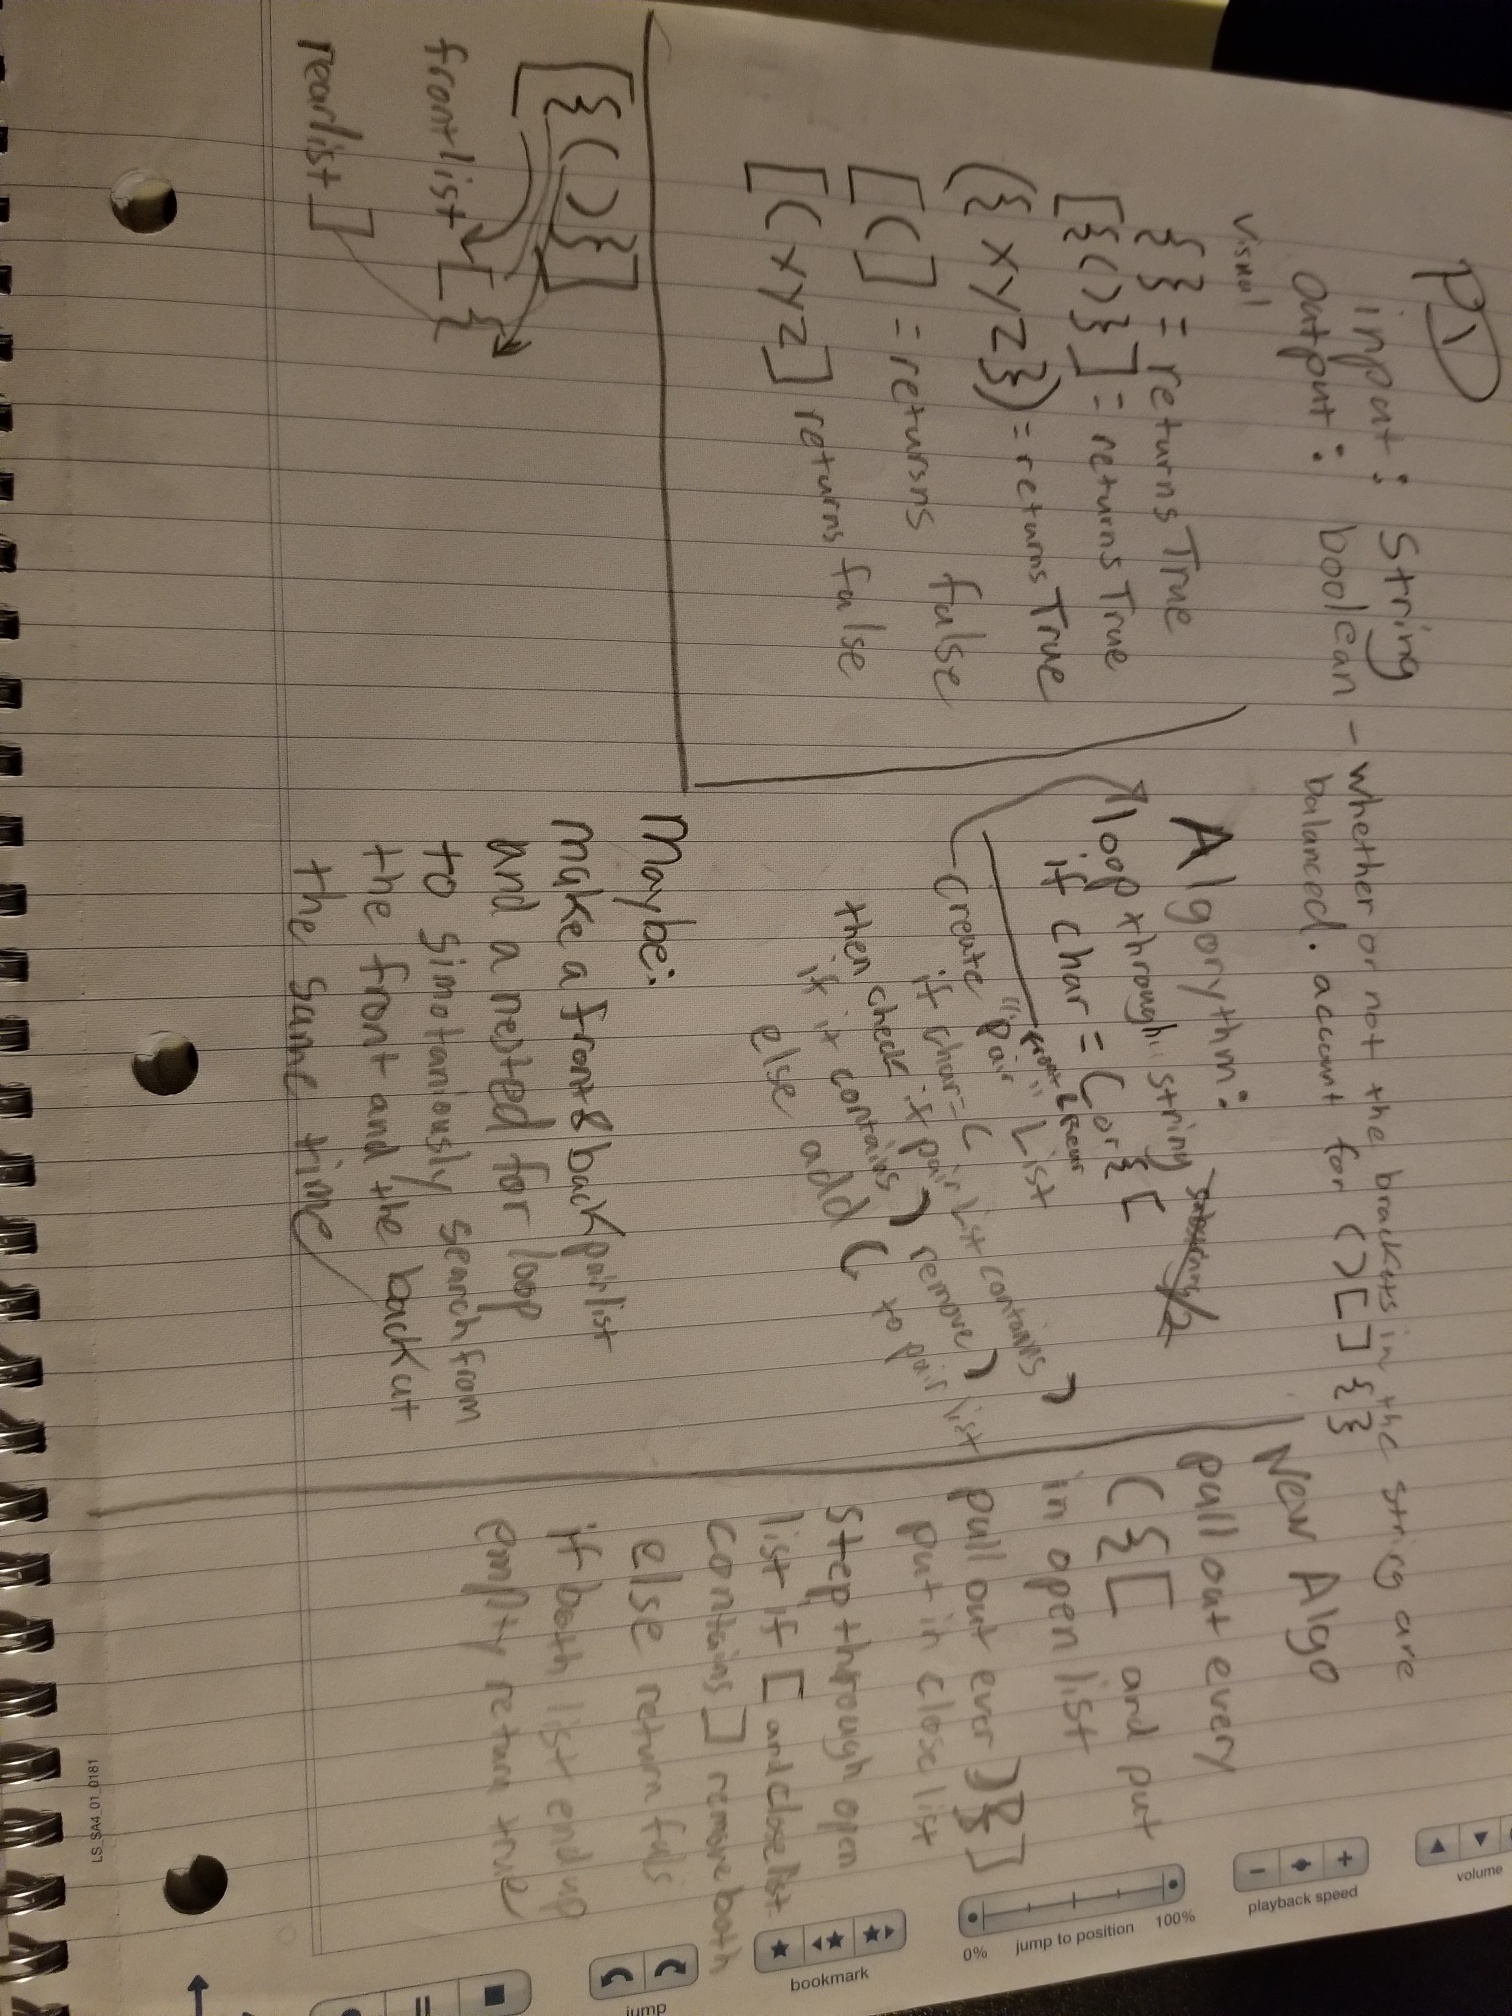 P1
input: String
output: boolean - whether or not the brackets in the string are
balanced. account for ( ) [ ] { }
visual
{ } = returns True
[ { ( ) } ] = returns True
( { x y z } ) = returns True
[ ( ] = retursns false
[ ( x y z ] returns false
Algorythm:
loop through string
if char = ( or { [
front & rear
create "pair" List
if char = ( pair List contains )
then check if pair
if it contains ) remove ) list
else add ( to pair
New Algo
pull out every
( { [ and put
in open list
pull out ever ) } ]
put in close list
step through open
list if [ and close list
contains ] remove both
else return fals
if both list end up
empty return true
[ { ( ) } ]
frontlist [ {
rearlist ] }
Maybe:
make a front & back pairlist
and a nested for loop
to simotaniously search from
the front and the back at
the same time
volume
- +
playback speed
0% jump to position 100%
bookmark
jump
LS_SA4_01_0181